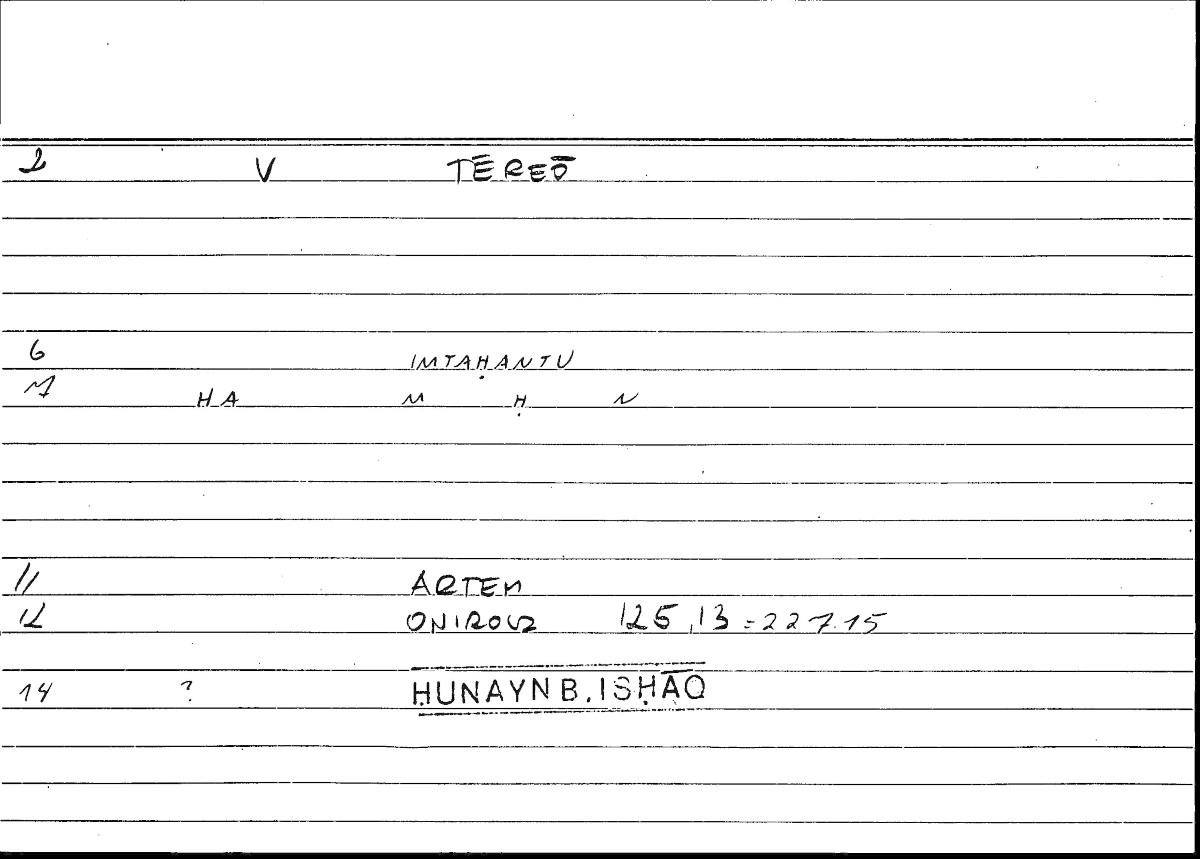 2 V TĒREŌ
6 IMTAḤANTU
7 HA M Ḥ N
11 ARTEM
12 ONIROCR 125,13 = 227.15
14 ? ḤUNAYN B. ISḤĀQ